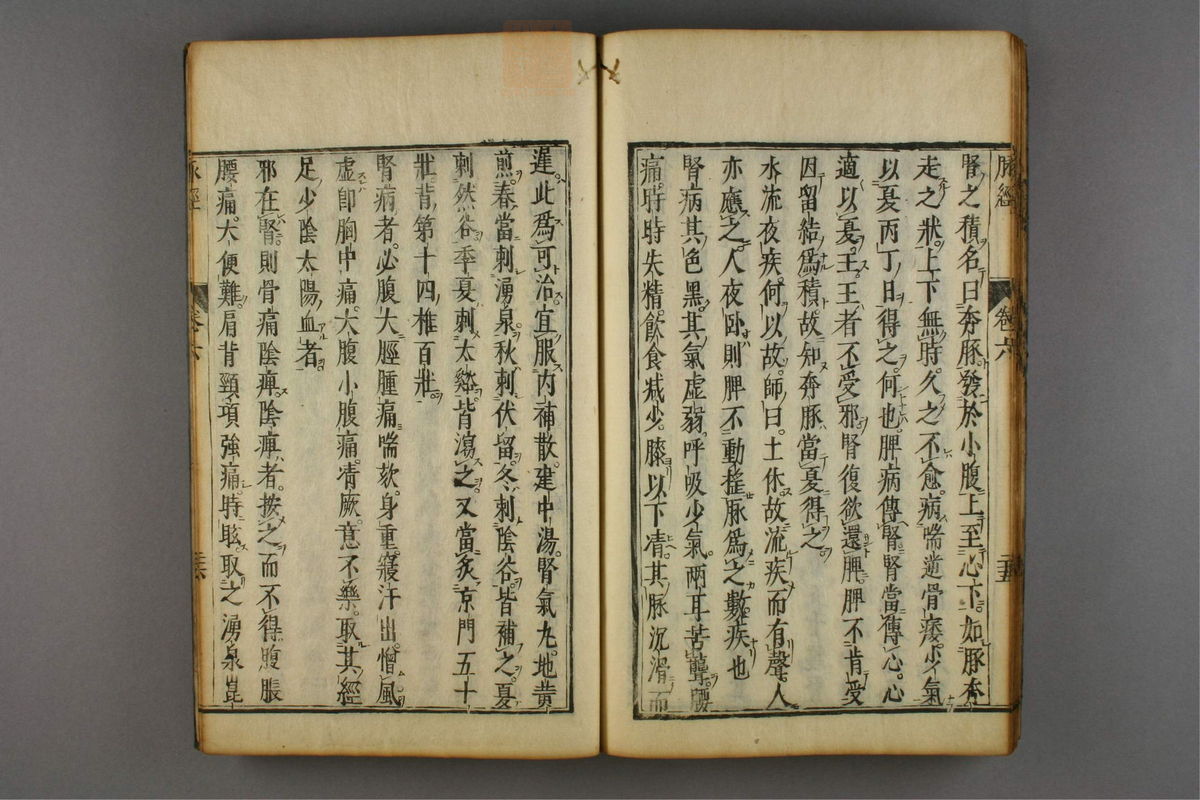 脉經
卷六
三五
腎之積名曰奔豚發於小腹上至心下如豚奔
走之狀上下無時久之不愈病喘逆骨痿少氣
以夏丙丁日得之何也脾病傳腎腎當傳心心
適以夏王王者不受邪腎復欲還脾脾不肯受
因留結爲積故知奔豚當夏得之
水流夜疾何以故師曰土休故流疾而有聲人
亦應之人夜臥則脾不動搖脉爲之數疾也
腎病其色黑其氣虛弱呼吸少氣兩耳苦聾腰
痛時時失精飲食減少膝以下清其脉沉滑而
遲此爲可治宜服內補散建中湯腎氣丸地黄
煎春當刺湧泉秋刺伏留冬刺陰谷皆補之夏
刺然谷季夏刺太谿皆瀉之又當炙京門五十
壯背第十四椎百壯
腎病者必腹大脛腫痛喘欬身重寢汗出憎風
虛即胸中痛大腹小腹痛清厥意不樂取其經
足少陰太陽血者
邪在腎則骨痛陰痺陰痺者按之而不得腹脹
腰痛大便難肩背頸項強痛時眩取之湧泉崑
脉經
卷六